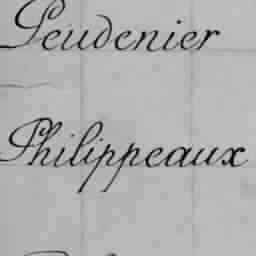 Peudenier
Philippeaux